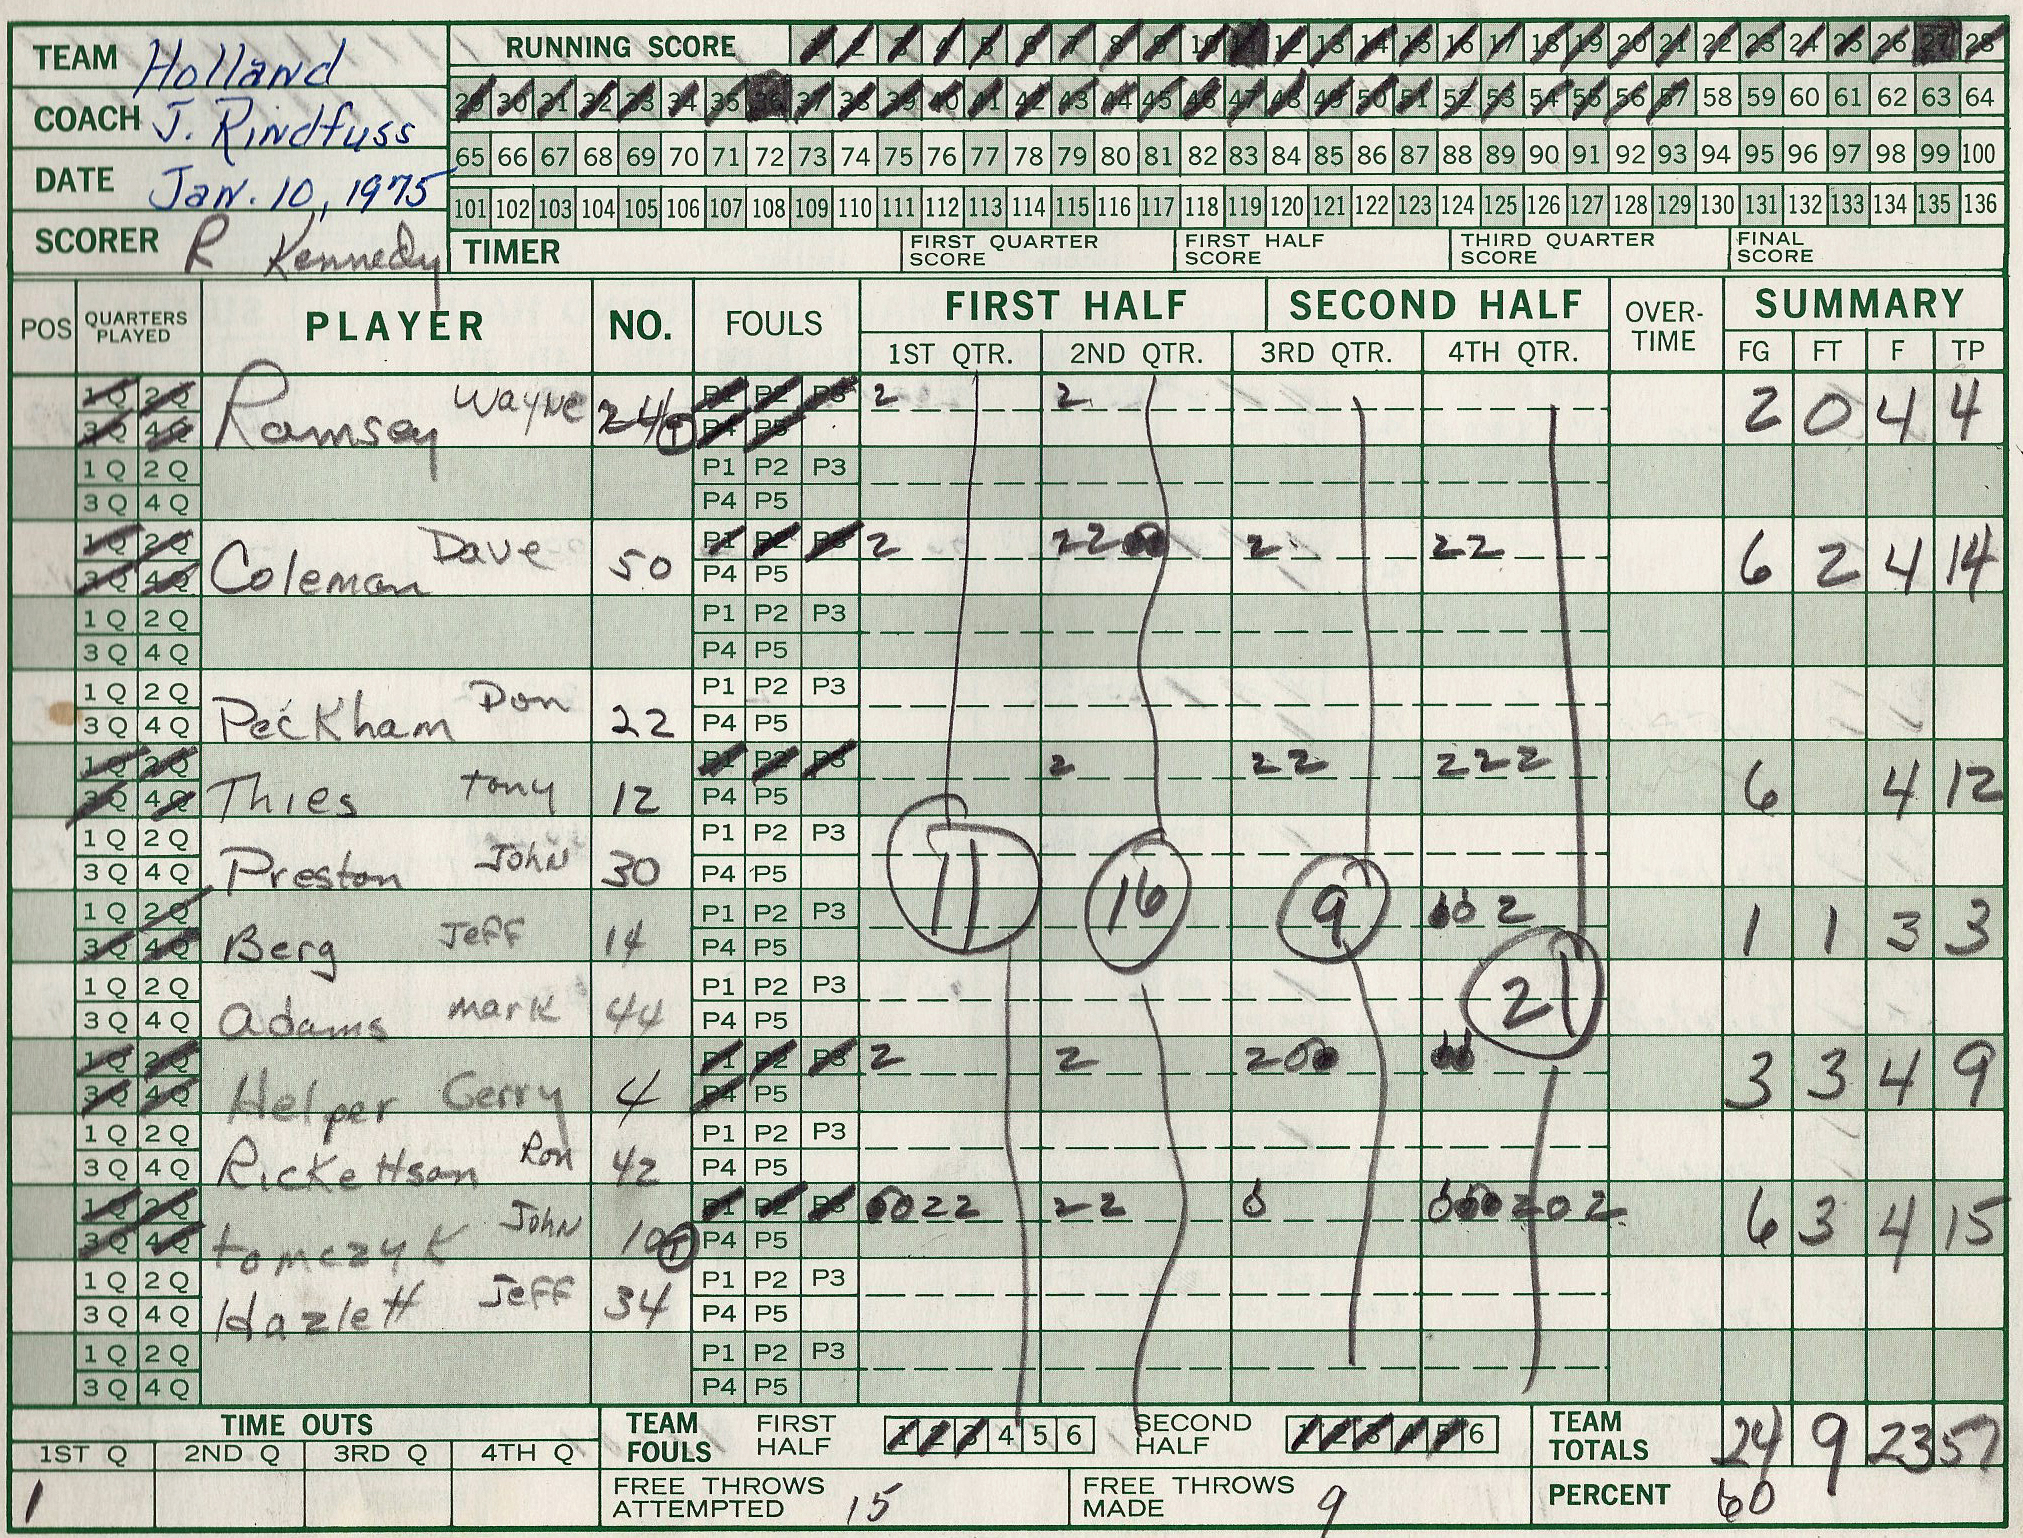 TEAM Holland
COACH J. Rindfuss
DATE Jan. 10, 1975
SCORER R Kennedy
RUNNING SCORE 1 2 3 4 5 6 7 8 9 10 11 12 13 14 15 16 17 18 19 20 21 22 23 24 25 26 27 28
29 30 31 32 33 34 35 36 37 38 39 40 41 42 43 44 45 46 47 48 49 50 51 52 53 54 55 56 57 58 59 60 61 62 63 64
65 66 67 68 69 70 71 72 73 74 75 76 77 78 79 80 81 82 83 84 85 86 87 88 89 90 91 92 93 94 95 96 97 98 99 100
101 102 103 104 105 106 107 108 109 110 111 112 113 114 115 116 117 118 119 120 121 122 123 124 125 126 127 128 129 130 131 132 133 134 135 136
TIMER FIRST QUARTER SCORE FIRST HALF SCORE THIRD QUARTER SCORE FINAL SCORE
POS QUARTERS PLAYED PLAYER NO. FOULS FIRST HALF SECOND HALF OVER-TIME SUMMARY
1ST QTR. 2ND QTR. 3RD QTR. 4TH QTR. FG FT F TP
1Q 2Q Ramsey Wayne 24 P1 P2 P3 2 2 2 0 4 4
3Q 4Q P4 P5
1Q 2Q P1 P2 P3
3Q 4Q P4 P5
1Q 2Q Coleman Dave 50 P1 P2 P3 2 22 2 22 6 2 4 14
3Q 4Q P4 P5
1Q 2Q P1 P2 P3
3Q 4Q P4 P5
1Q 2Q Peckham Don 22 P1 P2 P3
3Q 4Q P4 P5
1Q 2Q Thies Tony 12 P1 P2 P3 2 22 222 6 4 12
3Q 4Q P4 P5
1Q 2Q Preston John 30 P1 P2 P3
3Q 4Q P4 P5
11 16 9
1Q 2Q Berg Jeff 14 P1 P2 P3 2 1 1 3 3
3Q 4Q P4 P5
1Q 2Q Adams Mark 44 P1 P2 P3
3Q 4Q P4 P5
21
1Q 2Q Helper Gerry 4 P1 P2 P3 2 2 2 3 3 4 9
3Q 4Q P4 P5
1Q 2Q Rickettson Ron 42 P1 P2 P3
3Q 4Q P4 P5
1Q 2Q Tomczyk John 10 P1 P2 P3 22 22 202 6 3 4 15
3Q 4Q P4 P5
1Q 2Q Hazlett Jeff 34 P1 P2 P3
3Q 4Q P4 P5
1Q 2Q P1 P2 P3
3Q 4Q P4 P5
TIME OUTS TEAM FOULS FIRST HALF 1 2 3 4 5 6 SECOND HALF 1 2 3 4 5 6 TEAM TOTALS 24 9 23 57
1ST Q 2ND Q 3RD Q 4TH Q
1 FREE THROWS ATTEMPTED 15 FREE THROWS MADE 9 PERCENT 60